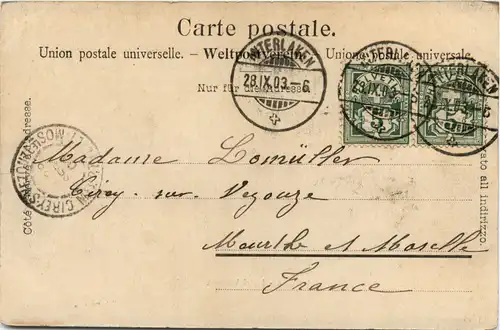 Carte postale.
Union postale universelle. – Weltpostverein. – Unione postale universale.
Nur für die Adresse.
Côté réservé à l'adresse.
lato all indirizzo.
INTERLAKEN
28.IX.03-6
INTERLAKEN
28.IX.03
INTERLAKEN
HELVETIA
5
CIREY
Madame Lomüller
Cirey-sur-Vezouze
Meurthe et Moselle
France